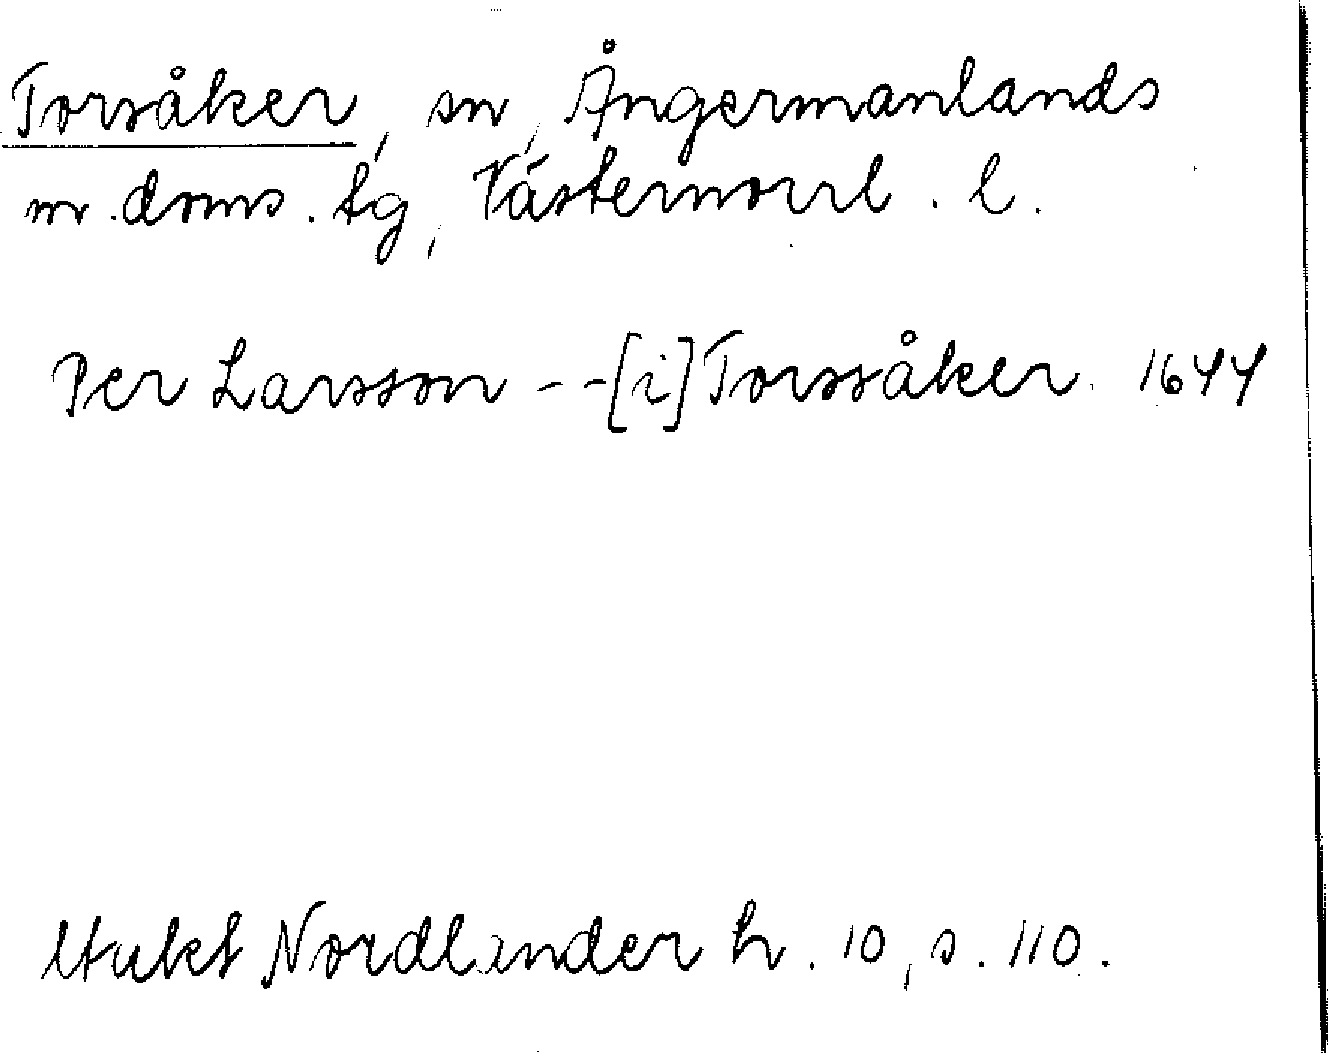 Torsåker, sn, Ångermanlands
m. doms. tg, Västernorrl. l.
Per Larsson - - [i] Torssåker 1644
Utukt Nordlander h. 10, s. 110.